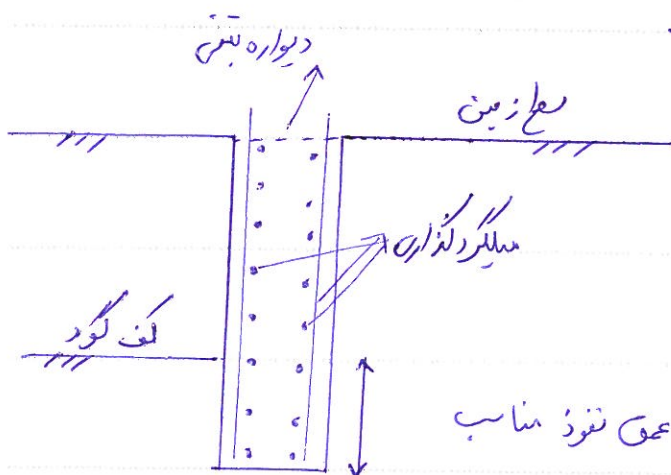 دیواره بتنی
سطح زمین
میلگرد گذاری
کف گود
عمق نفوذ مناسب